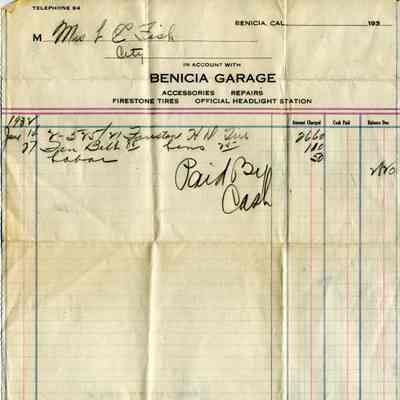 TELEPHONE 94
BENICIA, CAL. 193
M Mrs L C Fish
City
IN ACCOUNT WITH
BENICIA GARAGE
ACCESSORIES REPAIRS
FIRESTONE TIRES OFFICIAL HEADLIGHT STATION
Amount Charged Cash Paid Balance Due
1932
Jan 10 2- 525/21 Firestone H D 2660
27 Fan Belt Lens 100
Labor 50
Paid By
Cash